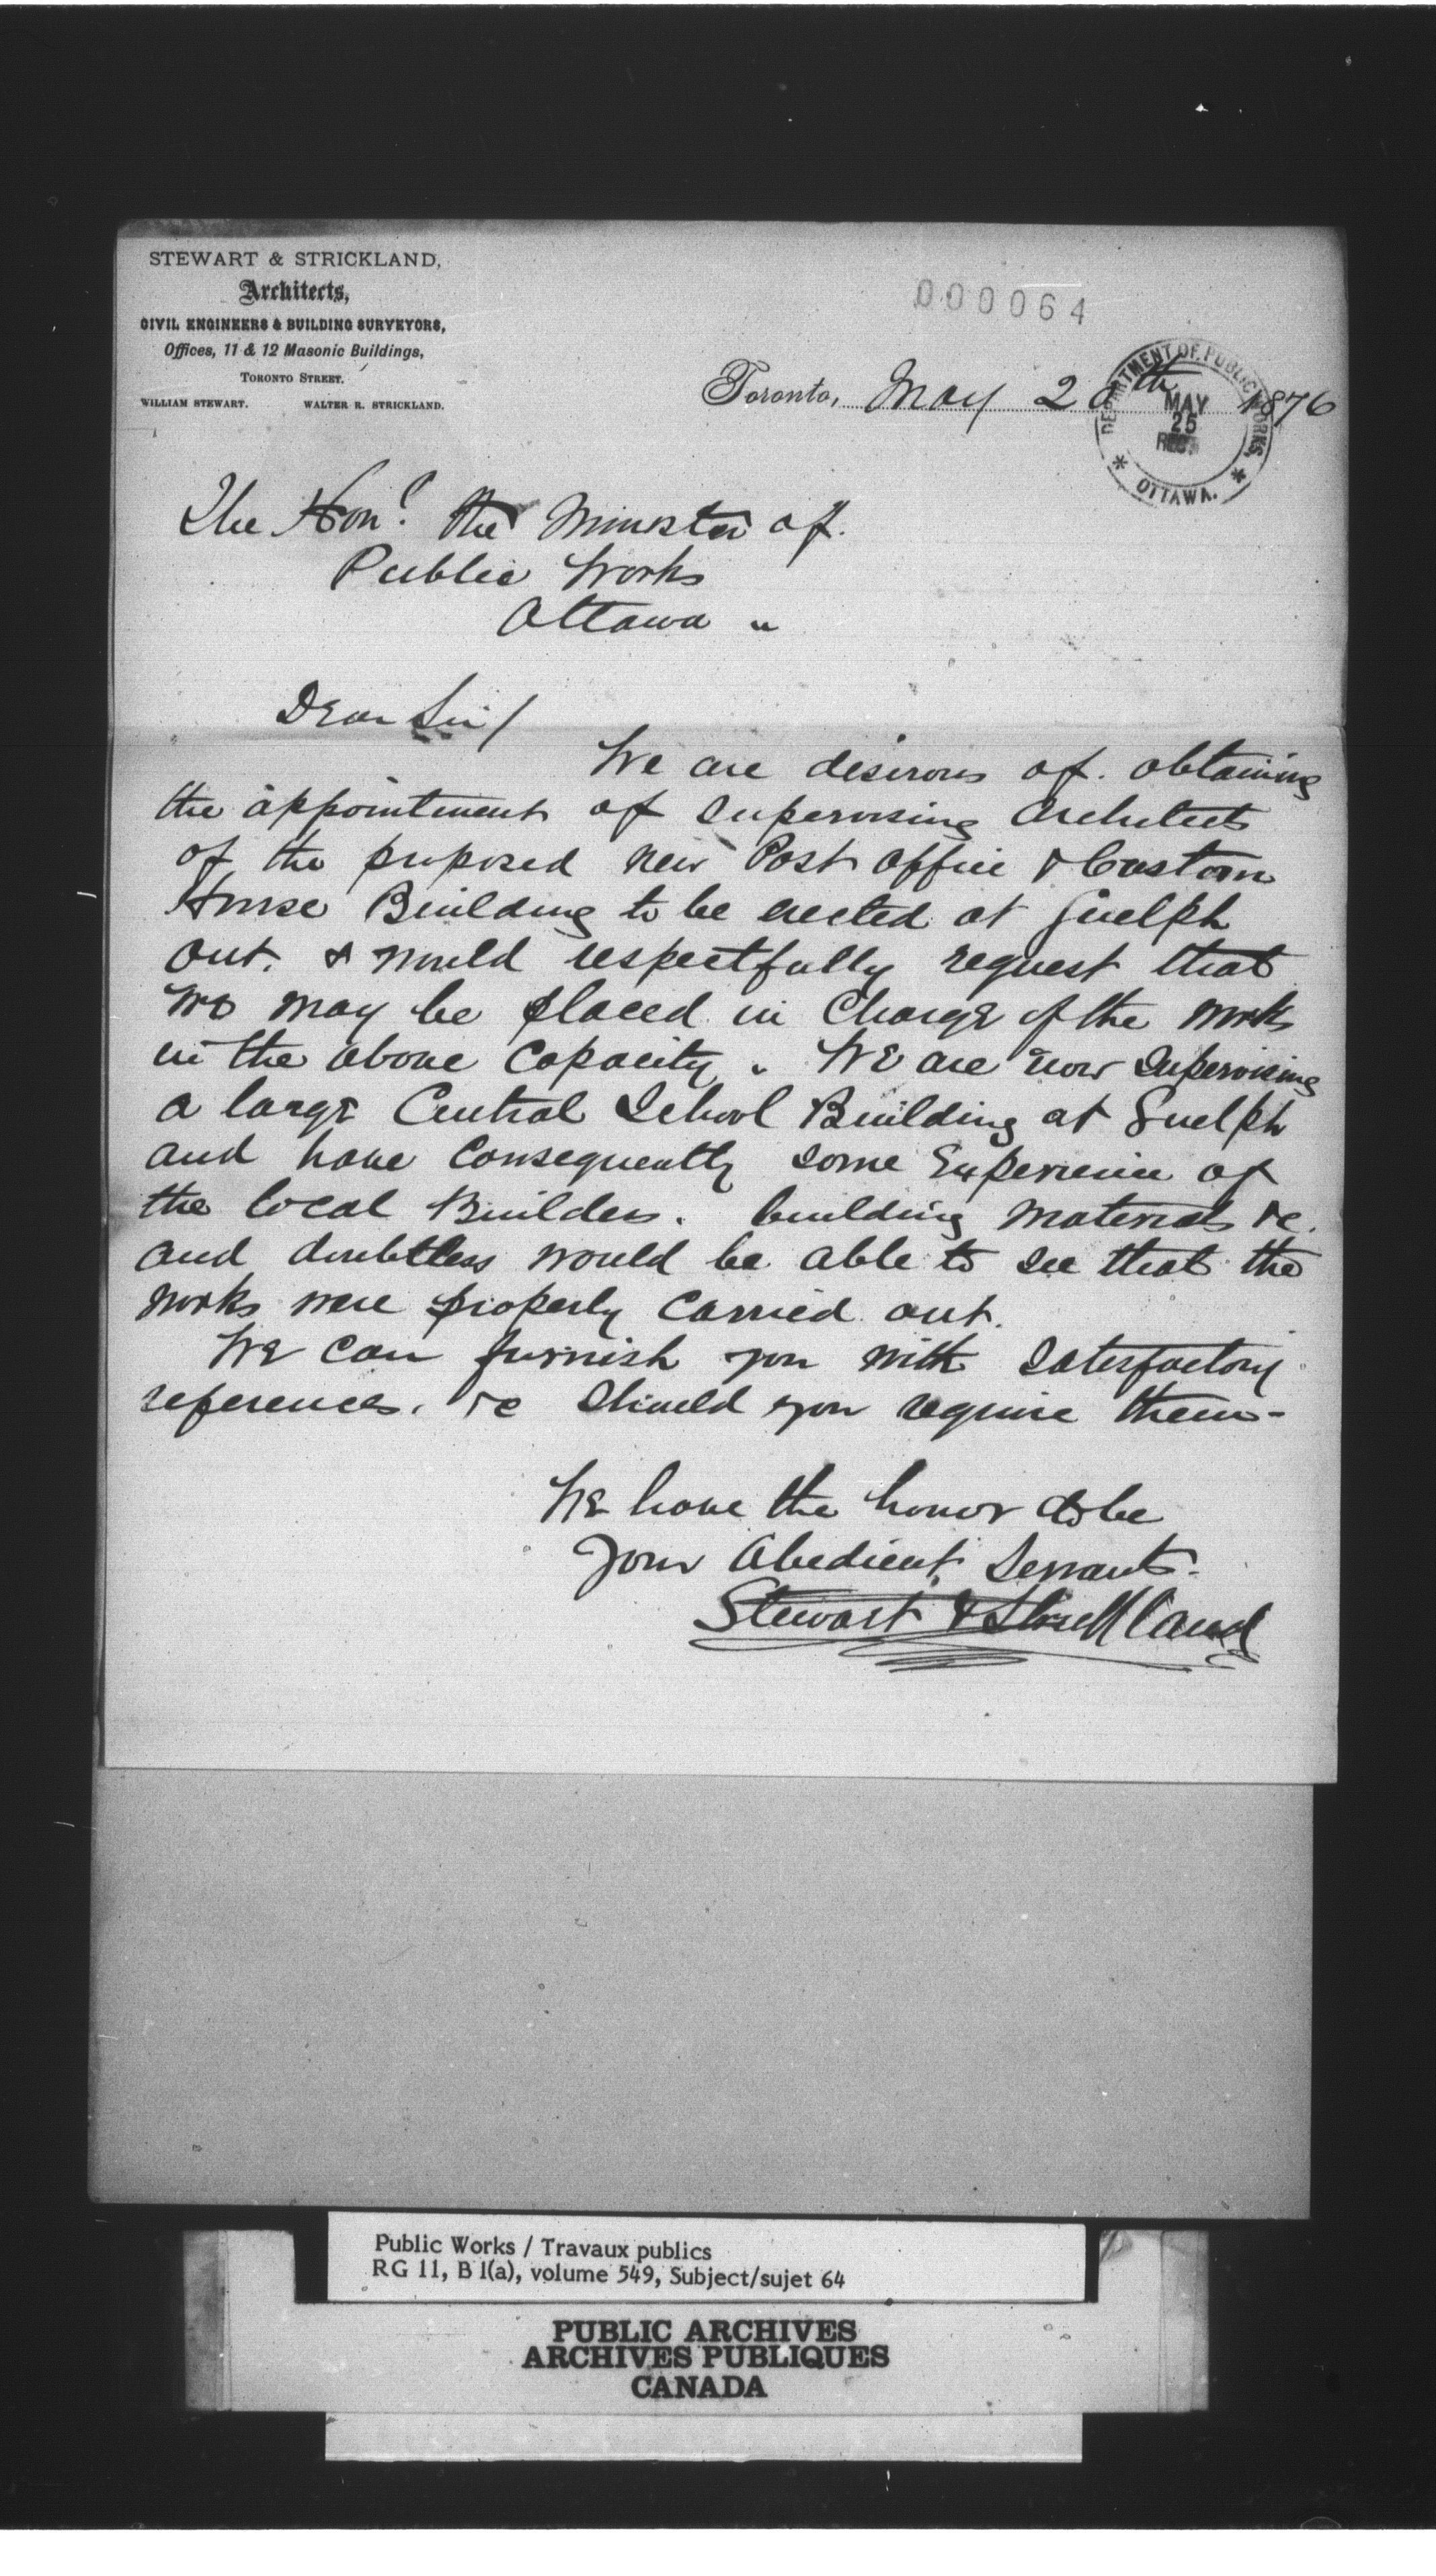 STEWART & STRICKLAND,
Architects,
CIVIL ENGINEERS & BUILDING SURVEYORS,
Offices, 11 & 12 Masonic Buildings,
TORONTO STREET.
WILLIAM STEWART. WALTER R. STRICKLAND.
000064
Toronto, May 20th 1876
DEPARTMENT OF PUBLIC WORKS,
MAY
25
REC'D
* OTTAWA. *
The Hon! the Minister of.
Public Works
Ottawa "
Dear Sir/
We are desirous of. obtaining
the appointment of Supervising Architects
of the proposed new Post office & Custom
House Building to be erected at Guelph
Ont. & would respectfully request that
we may be placed in Charge of the works
in the above Capacity. We are now Supervising
a large Central School Building at Guelph
and have Consequently some Experience of
the local Builders. building Materials &c.
and doubtless would be able to see that the
works were properly Carried out.
We can furnish you with Satisfactory
references. &c Should you require them-
We have the honor to be
Your Obedient Servants.
Stewart & Strickland
Public Works / Travaux publics
RG 11, B 1(a), volume 549, Subject/sujet 64
PUBLIC ARCHIVES
ARCHIVES PUBLIQUES
CANADA